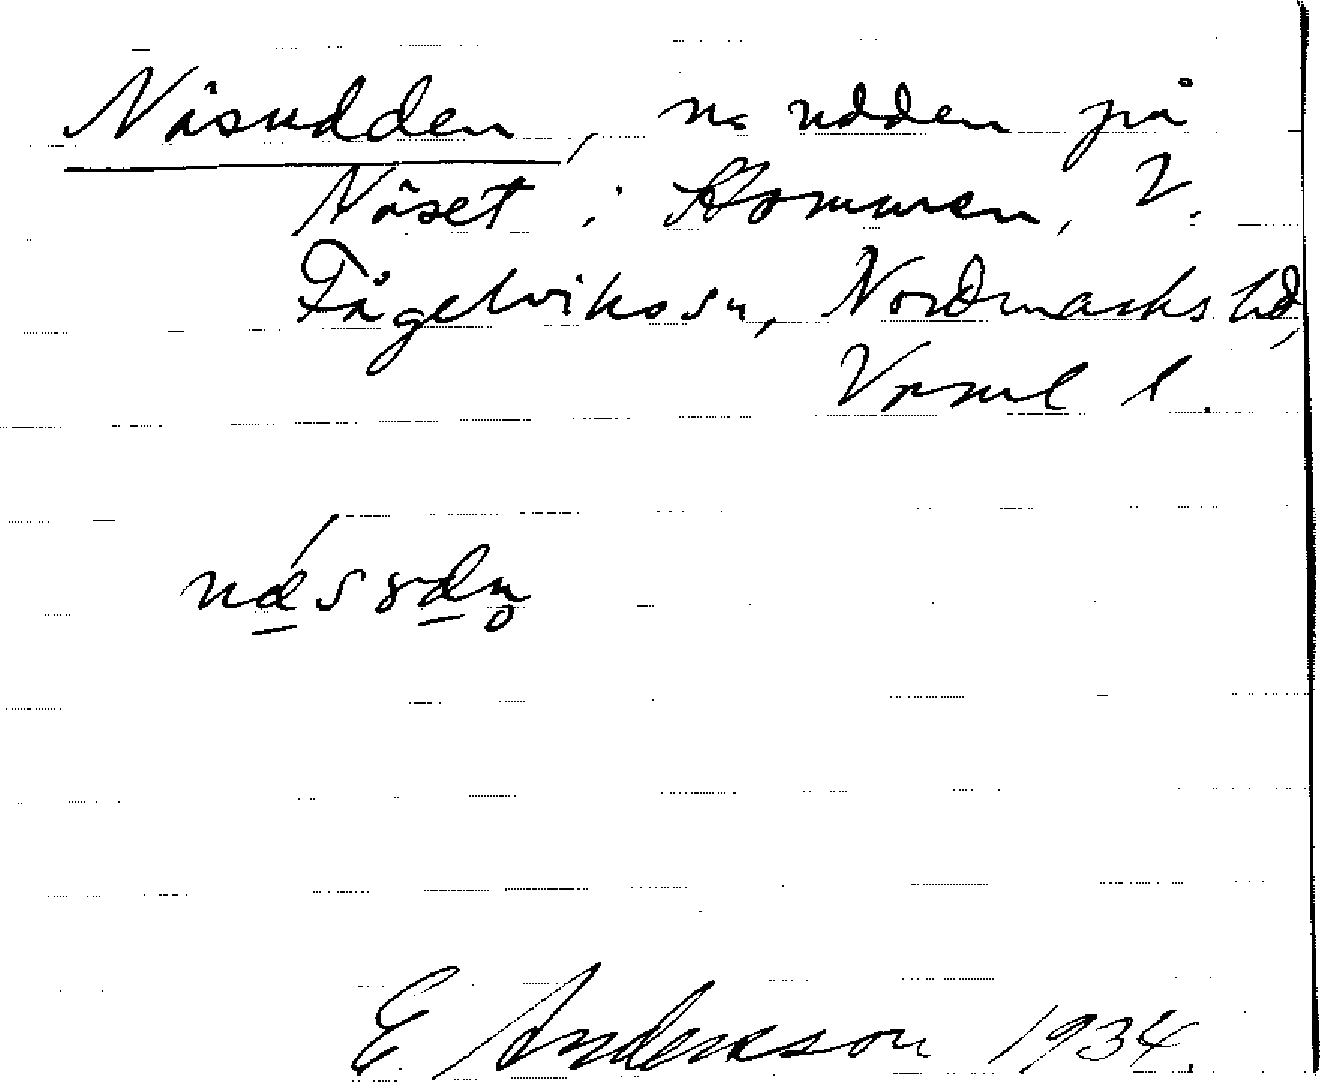 Näsudden, n. udden på
Näset i Hommen, V.
Fågelvikssn, Nordmarks hd,
Vrml l.
E Andersson 1934.